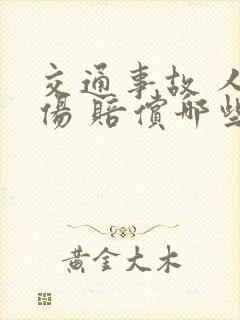 交通事故 人
傷 賠償哪些
黃金大木